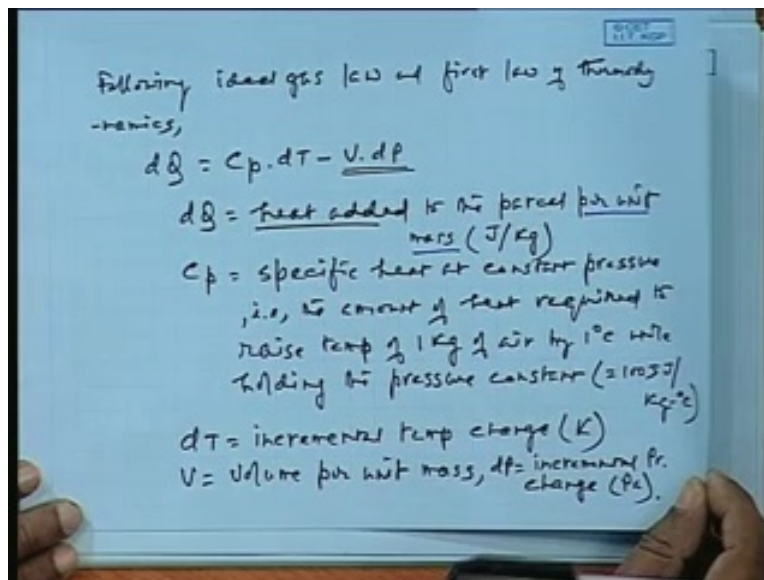 © CET
I.I.T. KGP
Following ideal gas law and first law of thermody
-namics,
dQ = Cp. dT - V. dP
dQ = heat added to the parcel per unit
mass (J/Kg)
Cp = specific heat at constant pressure
, i.e., the amount of heat required to
raise temp of 1 Kg of air by 1°c while
holding the pressure constant (=1005J/
Kg-°c)
dT = incremental temp change (K)
V = Volume per unit mass, dP = incremental Pr.
change (Pa).